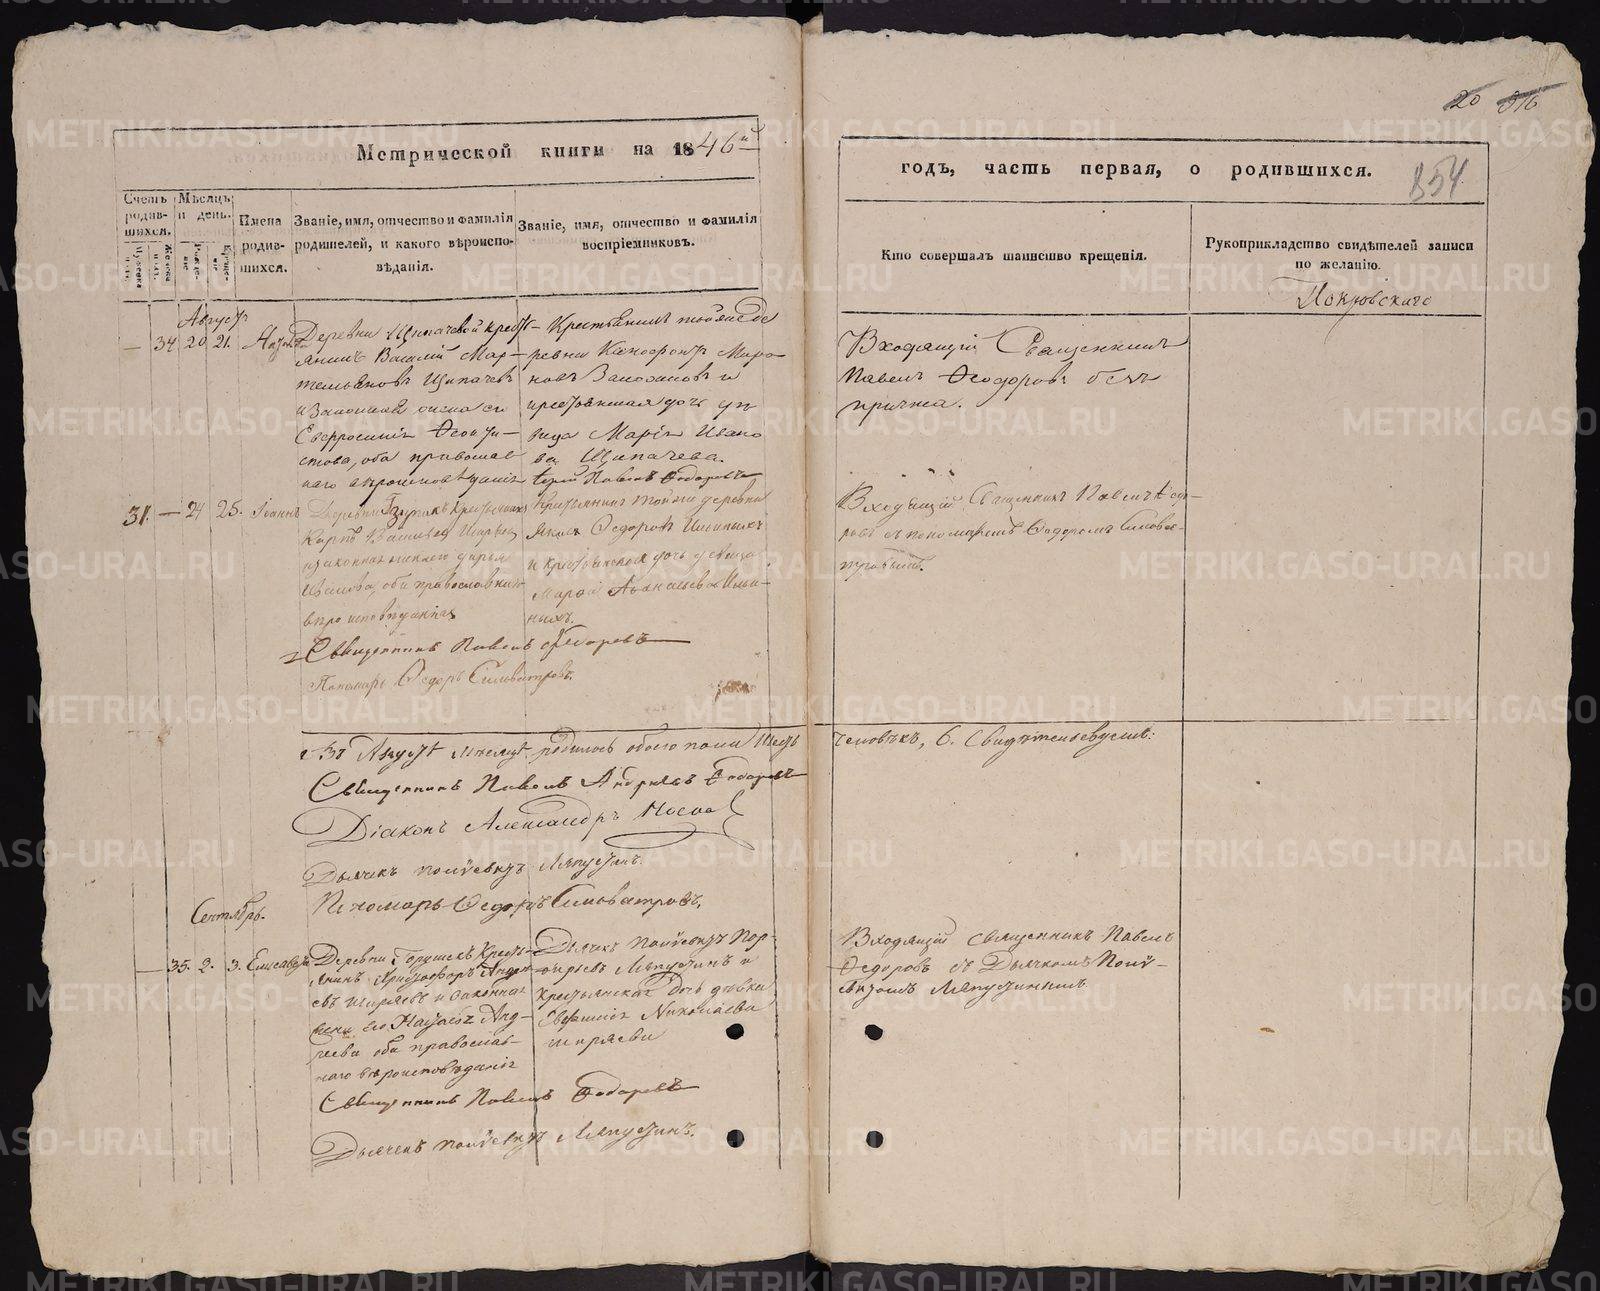 20 316
Метрической книги на 1846й
годъ, часть первая, о родившихся.
854
Счетъ родив-шихся.
Мѣсяцъ и день.
Имена родив-шихся.
Званіе, имя, отчество и фамилія родителей, и какого вѣроиспо-вѣданія.
Званіе, имя, отчество и фамилія воспріемниковъ.
Кто совершалъ таинство крещенія.
Рукоприкладство свидѣтелей записи по желанію.
Покровскаго
Августъ
— 34 20 21.
Деревни Щипачевой кресть-
янинъ Василій Мар-
темьяновъ Щипачевъ
и Законная жена его
Евфросинія Ѳеокти-
стова, оба православ
наго вѣроисповѣданія
Крестьянинъ тойже де
ревни Ксенофонтъ Миро
новъ и
крестьянская дочь дѣ
вица Марія Ивано
ва Щипачева.
Павелъ Ѳедоровъ
Входящій Священникъ
Павелъ Ѳеодоровъ безъ
причта.
31. — 24 25. Іоаннъ
Деревни
Карпъ Васильевъ
и законная жена его Дарья
Иванова, оба православнаго
вѣроисповѣданія
Крестьянинъ тойже деревни
Яковъ Ѳедоровъ
и крестьянская дочь дѣвица
Марѳа Аѳанасьева Ильи-
ныхъ.
Входящій Священникъ Павелъ Ѳедо-
ровъ съ пономаремъ Ѳедоромъ Сильвес-
тровымъ.
Священникъ Павелъ Ѳедоровъ
Пономарь Ѳедоръ Сильвестровъ.
Августъ мѣсяцъ родилось обоего пола шесть
человѣкъ, 6. Свидѣтельствуемъ:
Священникъ Павелъ Андреевъ Ѳедоровъ
Діаконъ Александръ Носовъ
Дьячекъ Поліевктъ Ляпустинъ.
Пономарь Ѳедоръ Сильвестровъ.
Сентябрь.
— 35. 2. 3. Елисавета
Деревни Горушекъ Кресть-
янинъ Христофоръ Андре-
евъ Ширяевъ и законная
жена его Анд-
реева оба православ-
наго вѣроисповѣданія
Дьячекъ Поліевктъ Пор-
фирьевъ Ляпустинъ и
крестьянская дочь дѣвка
Николаева
Ширяева
Входящій священникъ Павелъ
Ѳедоровъ съ Дьячкомъ Полі-
евктомъ Ляпустинымъ
Священникъ Павелъ Ѳедоровъ
Дьячекъ Поліевктъ Ляпустинъ.